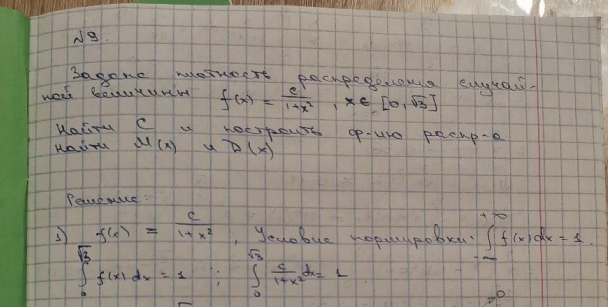 №9.
Задана плотность распределения случай-
ной величины f(x) = c/(1+x²), x∈ [0,√3]
Найти С и построить ф-ию распр-я
найти M(x) и D(x)
Решение:
1) f(x) = c/(1+x²), Условие нормировки: ∫_{-∞}^{+∞} f(x)dx = 1.
∫_0^{√3} f(x)dx = 1 ; ∫_0^{√3} c/(1+x²) dx = 1